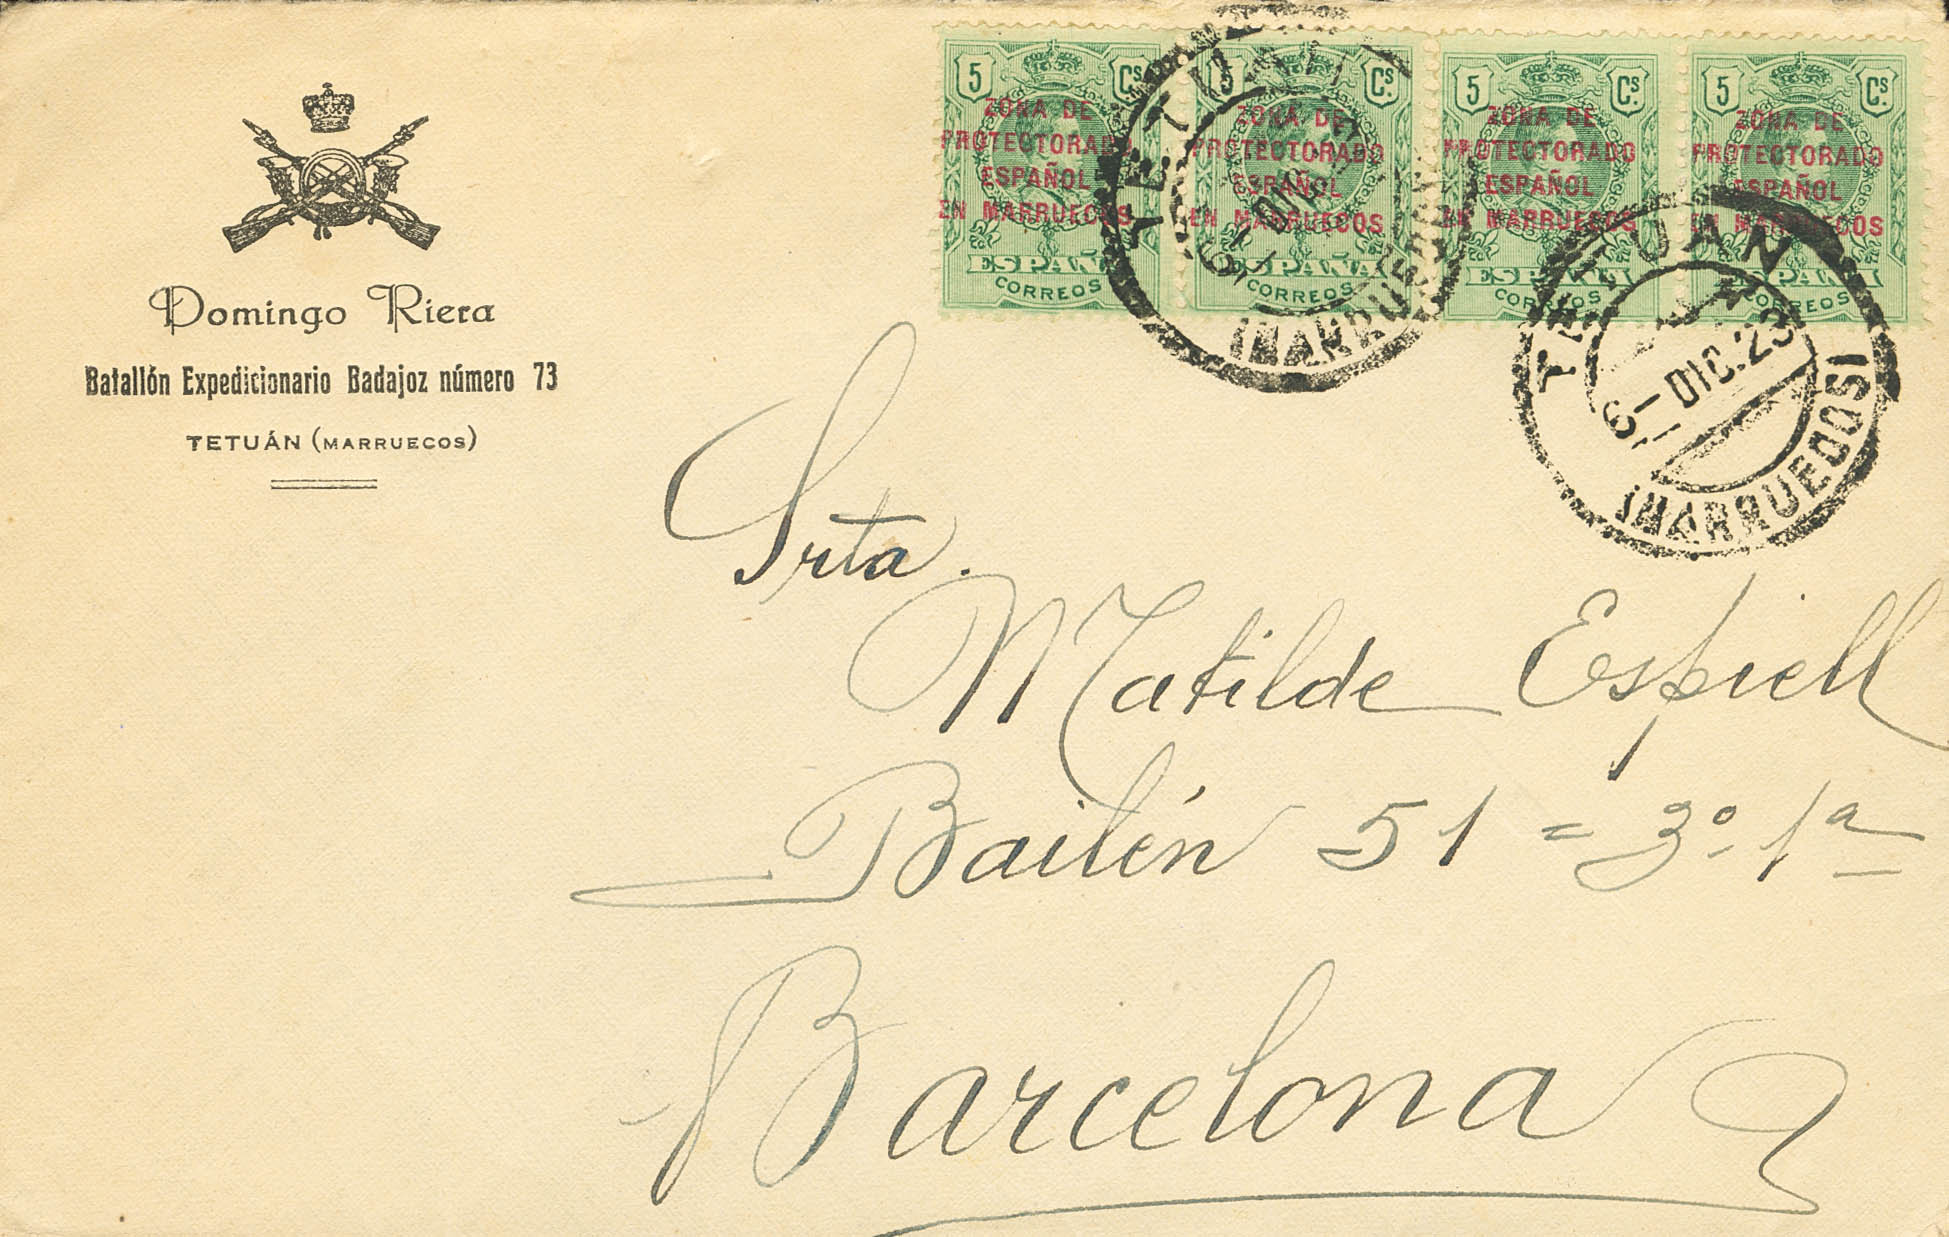 Domingo Riera
Batallón Expedicionario Badajoz número 73
TETUÁN (MARRUECOS)
5 Cs.
ZONA DE
PROTECTORADO
ESPAÑOL
EN MARRUECOS
ESPAÑA
CORREOS
5 Cs.
ZONA DE
PROTECTORADO
ESPAÑOL
EN MARRUECOS
ESPAÑA
CORREOS
5 Cs.
ZONA DE
PROTECTORADO
ESPAÑOL
EN MARRUECOS
ESPAÑA
CORREOS
5 Cs.
ZONA DE
PROTECTORADO
ESPAÑOL
EN MARRUECOS
ESPAÑA
CORREOS
TETUAN
(MARRUECOS)
TETUAN
6-DIC.23
(MARRUECOS)
Srta.
Matilde Espiell
Bailén 51 = 3º 1ª
Barcelona